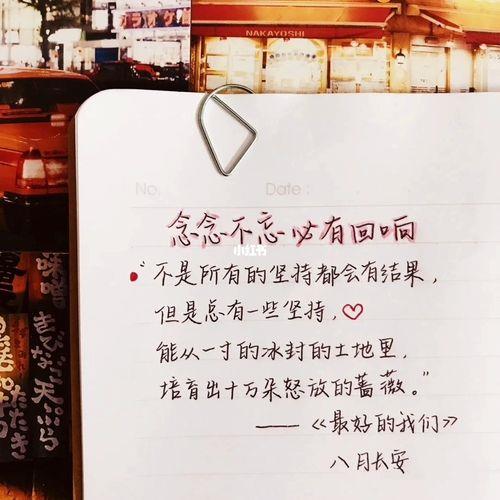 NAKAYOSHI
No.
Date :
念念不忘必有回响
小红书
"不是所有的坚持都会有结果,
但是总有一些坚持,
能从一寸的冰封的土地里,
培育出十万朵怒放的蔷薇。"
——《最好的我们》
八月长安
味噌
きびなご天ぷら
たたき